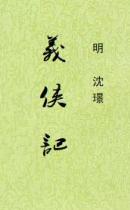 明 沈璟
義俠記